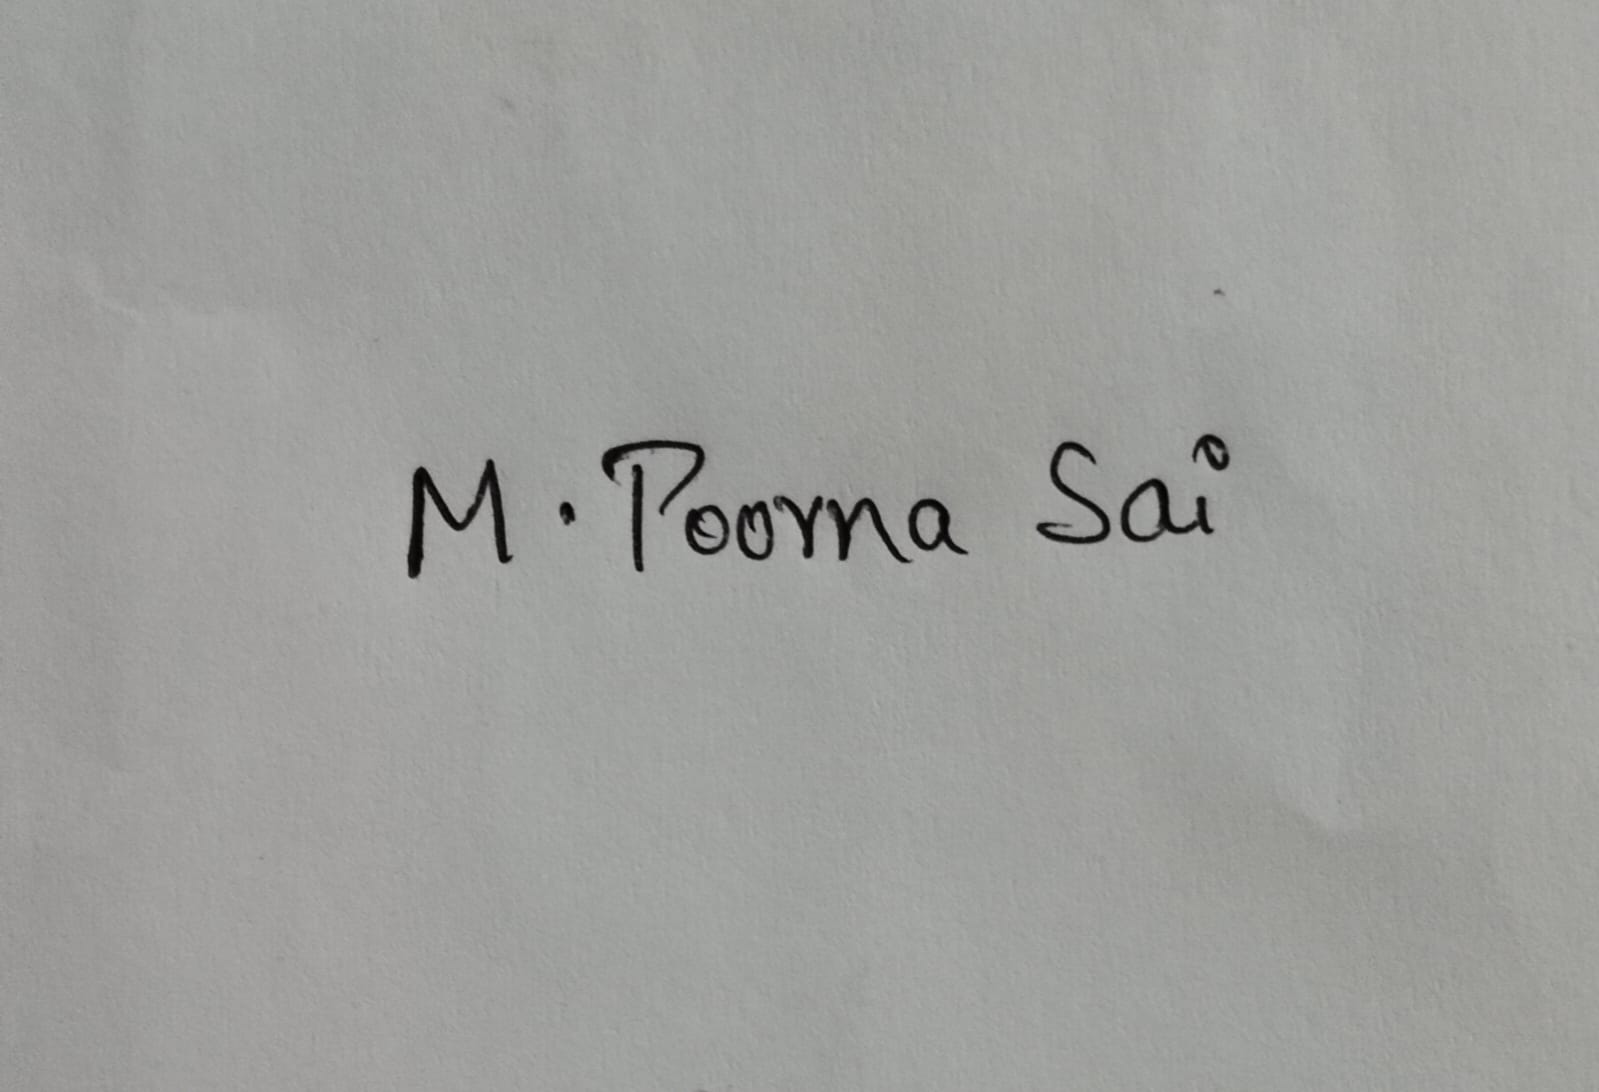 M. Poorna Sai